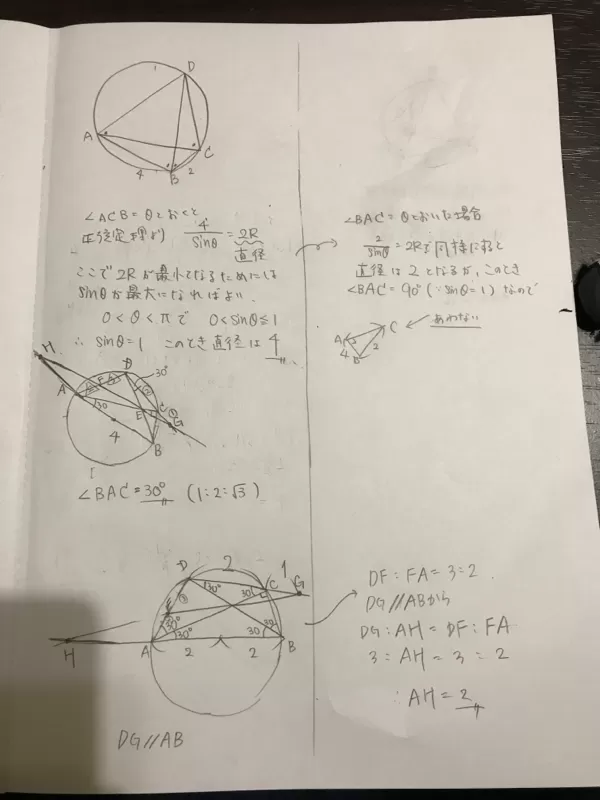 D
A
C
B
4
2
∠ACB=θとおくと
正弦定理より 4/sinθ=2R
直径
ここで2Rが最小となるためには
sinθが最大になればよい.
0<θ<πで 0<sinθ≦1
∴ sinθ=1 このとき直径は4
∠BAC=θとおいた場合
2/sinθ=2Rで同様にすると
直径は2となるが,このとき
∠BAC=90°(∵sinθ=1)なので
あわない
A
C
4
2
B
H
D
30°
A
F
30
E
C
G
4
B
∠BAC=30° (1:2:√3)
D
2
1
C
G
30°
30
30°
30°
30
30
H
A
2
2
B
DG//AB
DF:FA=3:2
DG//ABから
DG:AH=DF:FA
3:AH=3:2
∴AH=2